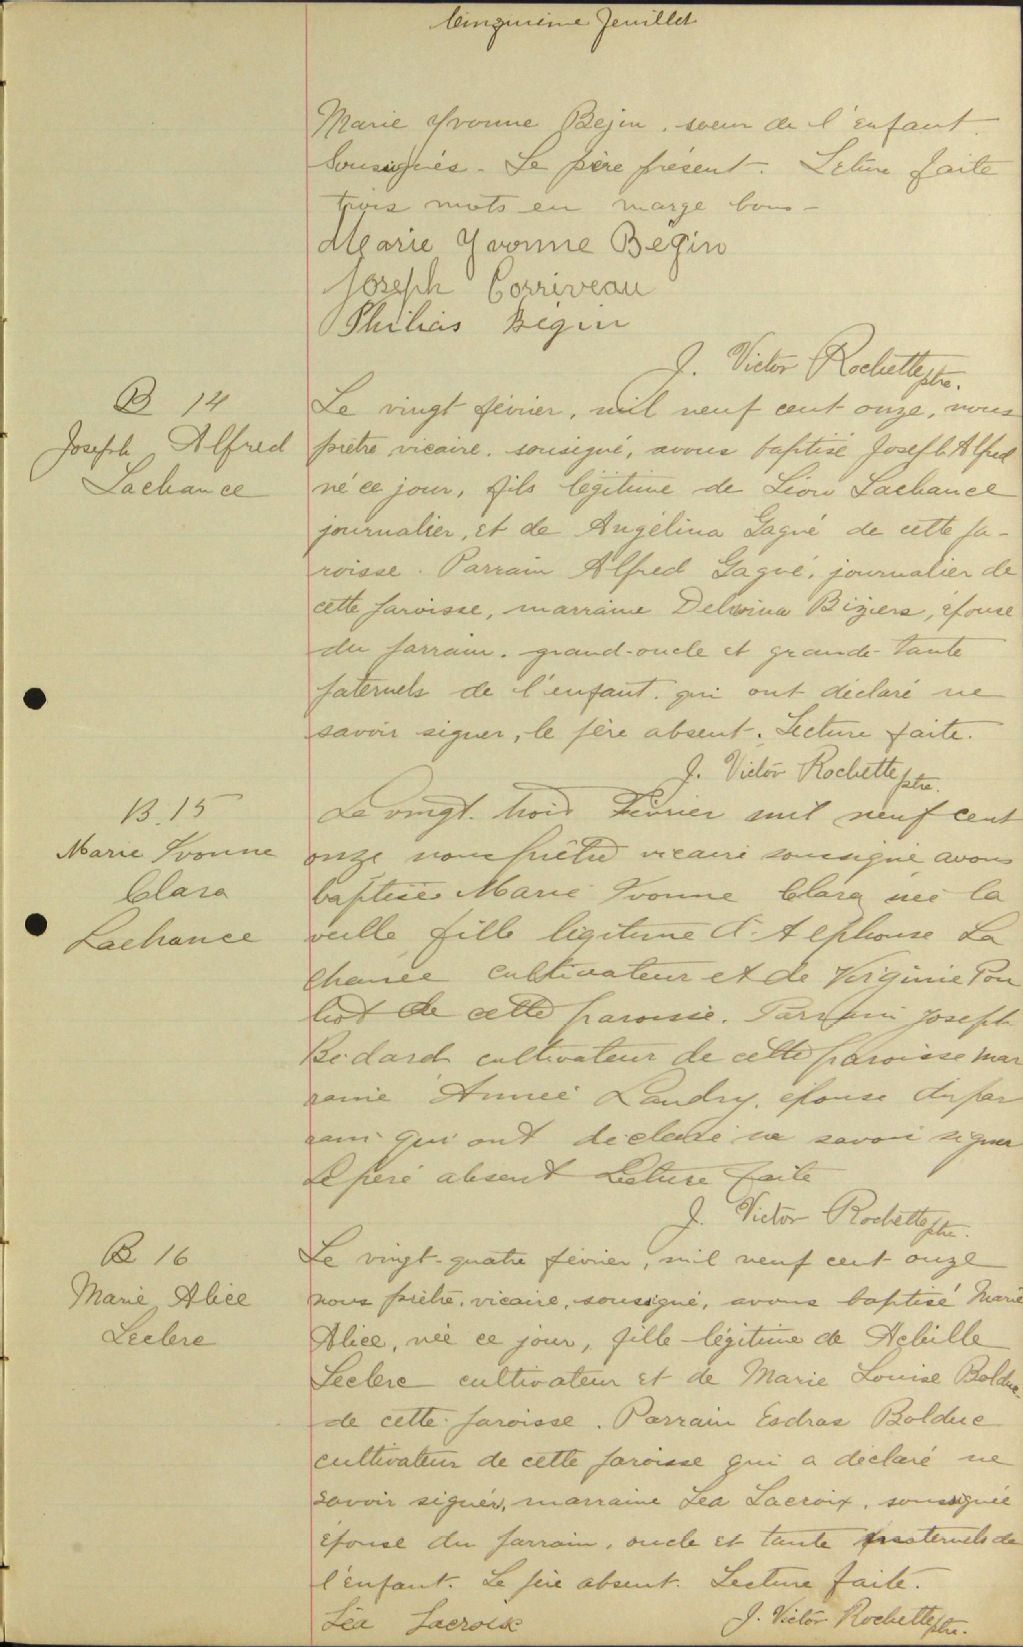 Cinquième feuillet
Marie Yvonne Bejin, soeur de l'enfant.
Soussignés. Le père présent. Lecture faite
trois mots en marge bons -
Marie Yvonne Bégin
Joseph Corriveau
Philias Bégin
J. Victor Rochette ptre.
B 14
Joseph Alfred
Lachance
Le vingt février, mil neuf cent onze, nous
prêtre vicaire, sousigné, avons baptisé Joseph Alfred
né ce jour, fils légitime de Léon Lachance
journalier, et de Angélina Gagné de cette pa-
roisse. Parrain Alfred Gagné, journalier de
cette paroisse, marraine Delvina Biziers, épouse
du parrain. grand-oncle et grande-tante
paternels de l'enfant. qui ont déclaré ne
savoir signer, le père absent. Lecture faite.
J. Victor Rochette ptre.
B. 15
Marie Yvonne
Clara
Lachance
Le vingt trois Février mil neuf cent
onze nous prêtre vicaire soussigné avons
baptisée Marie Yvonne Clara née la
veille fille légitime d'Alphonse La
chance cultivateur et de Virginie Pou
liot de cette paroisse. Parrain Joseph
Bédard cultivateur de cette paroisse mar
raine Année Landry, épouse du par
rain qui ont déclaré ne savoir signer
Le père absent Lecture faite
J. Victor Rochette ptre.
B 16
Marie Alice
Leclerc
Le vingt-quatre février, mil neuf cent onze
nous prêtre, vicaire, soussigné, avons baptisé Marie
Alice, née ce jour, fille légitime de Achille
Leclerc cultivateur et de Marie Louise Bolduc
de cette paroisse. Parrain Esdras Bolduc
cultivateur de cette paroisse qui a déclaré ne
savoir signer, marraine Léa Lacroix, soussignée
épouse du parrain, oncle et tante maternels de
l'enfant. Le père absent. Lecture faite.
Léa Lacroix
J. Victor Rochette ptre.